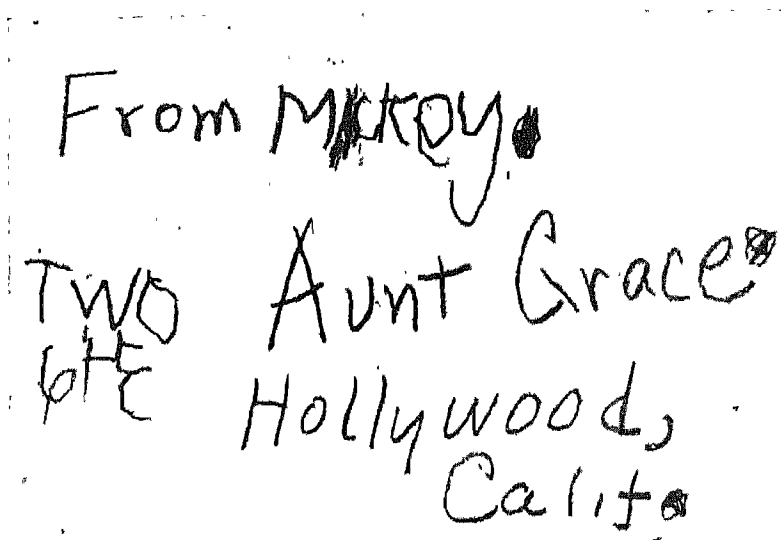 From Mickey.
Two Aunt Grace.
Hollywood,
Calif.